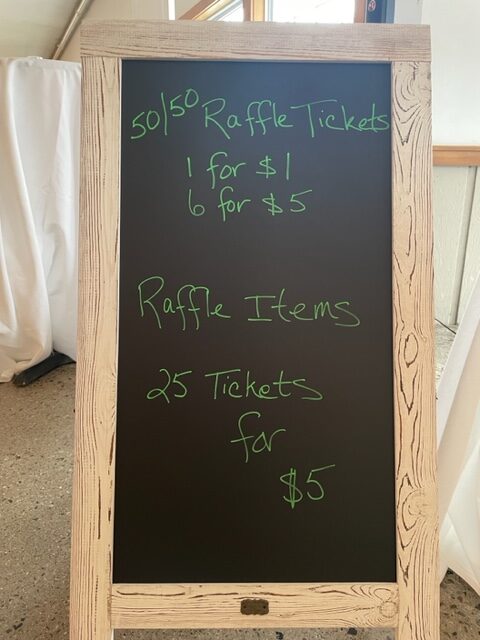 50/50 Raffle Tickets
1 for $1
6 for $5
Raffle Items
25 Tickets
for
$5